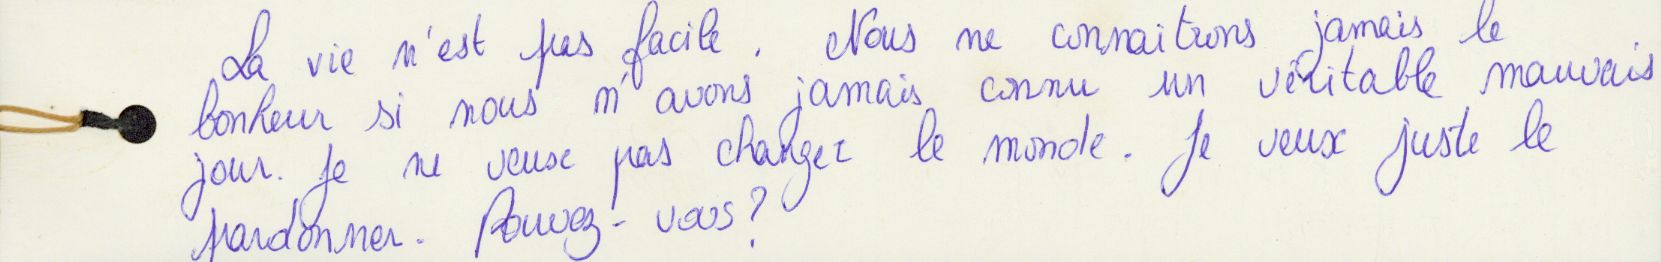 La vie n'est pas facile. Nous ne connaitrons jamais le
bonheur si nous n'avons jamais connu un véritable mauvais
jour. Je ne veux pas changer le monde. Je veux juste le
pardonner. Pouvez-vous?